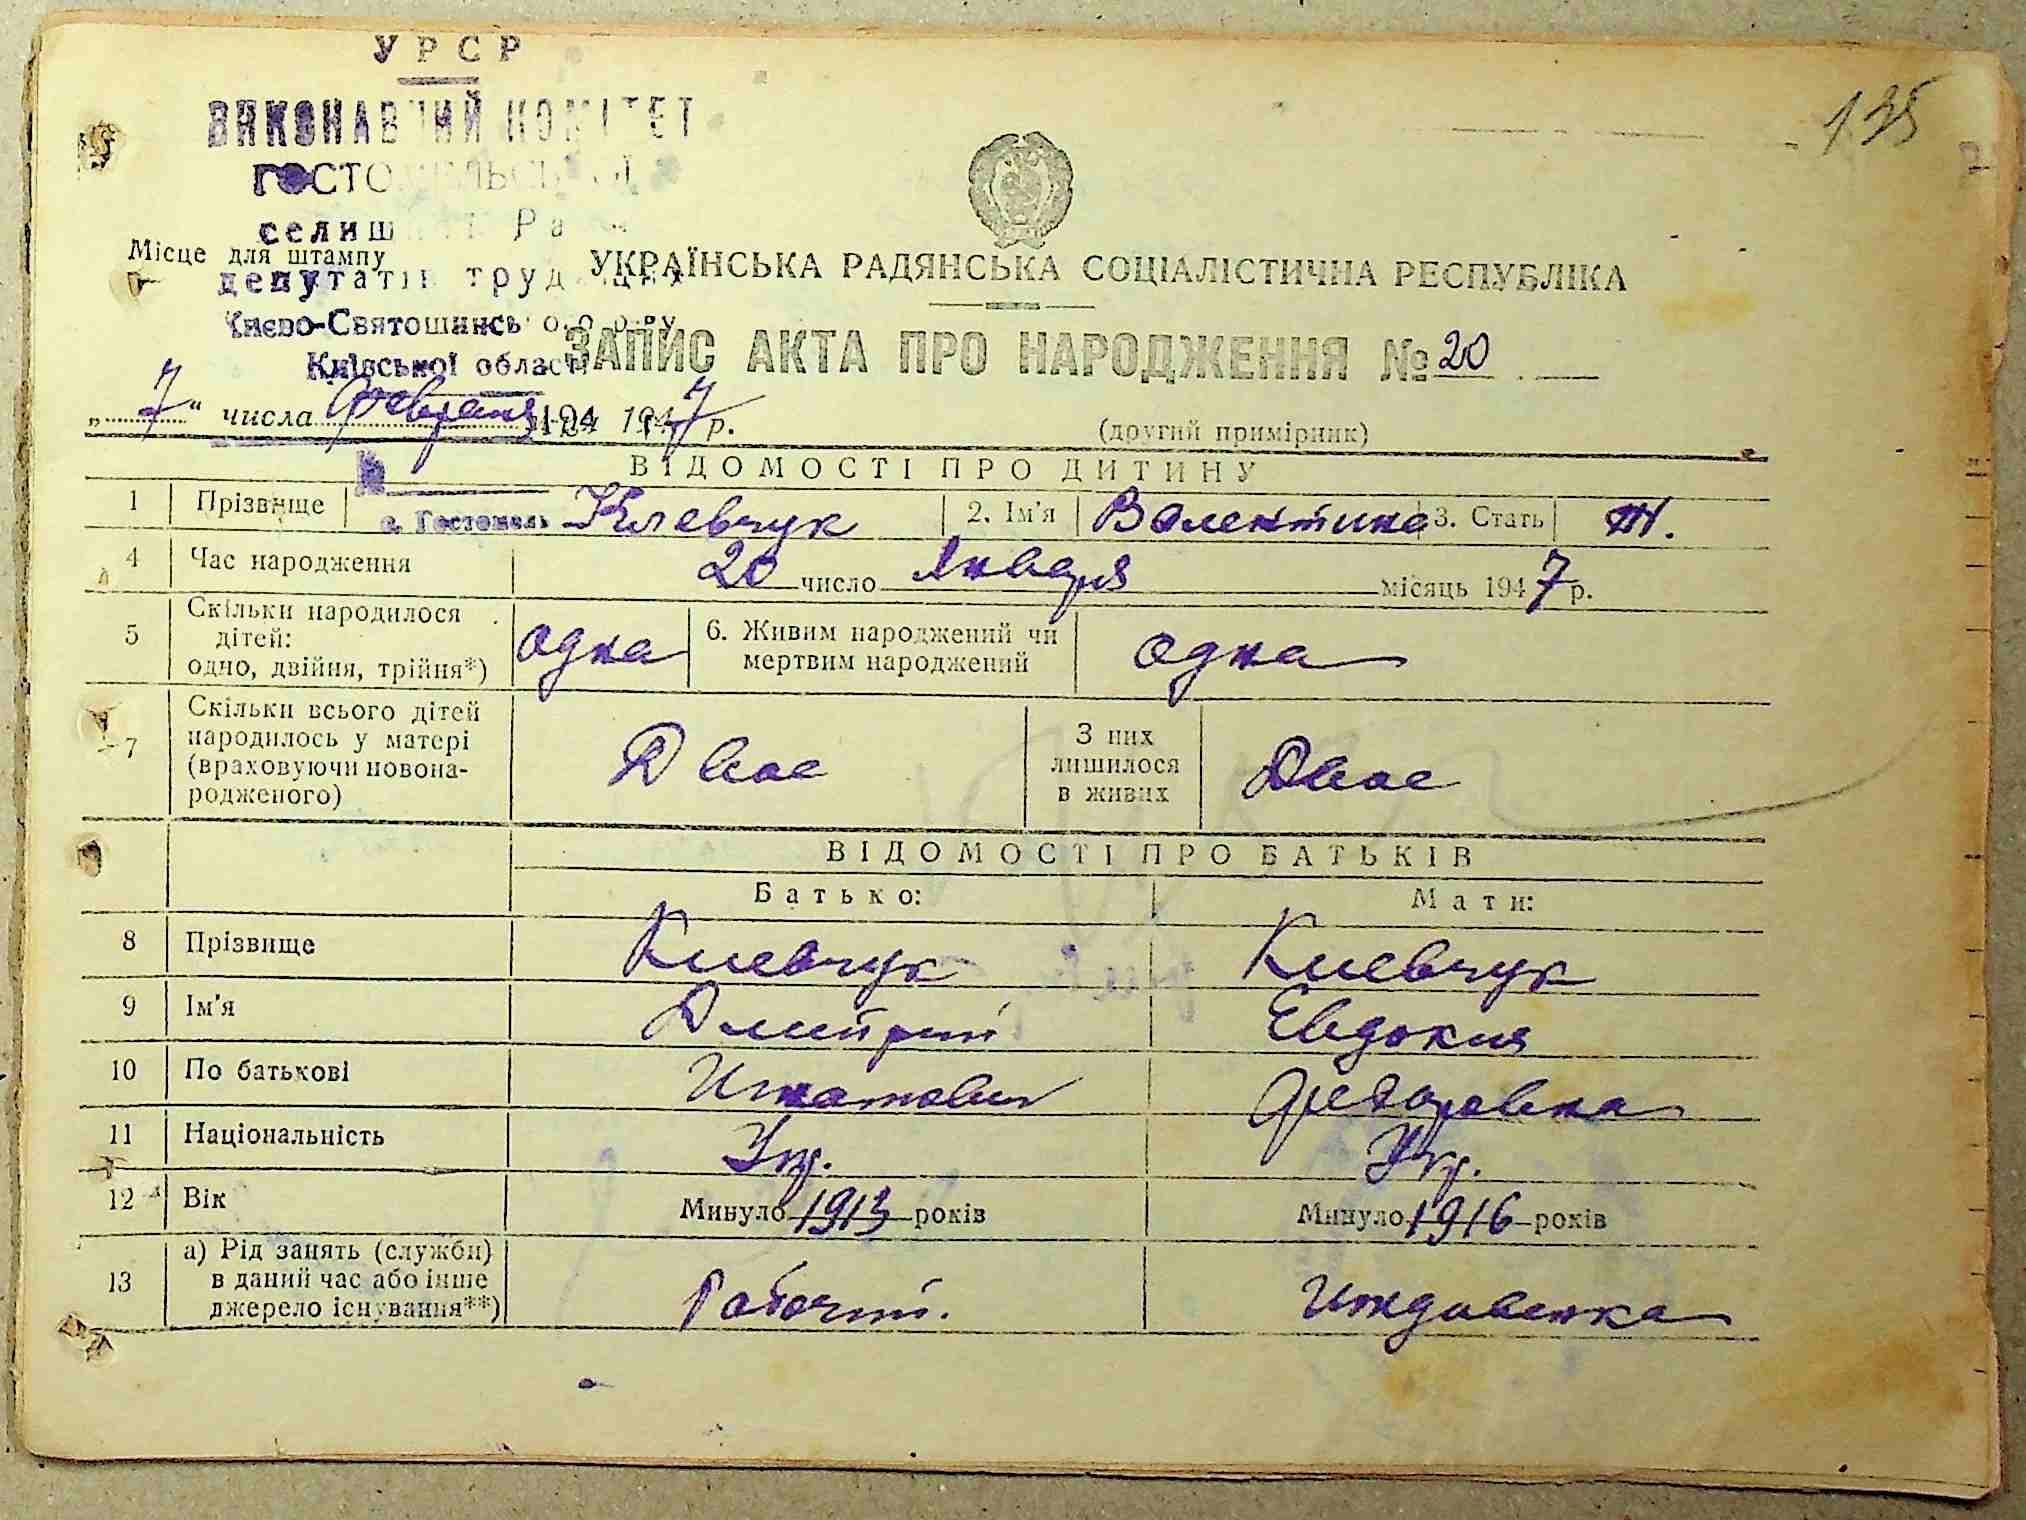 135
УРСР
ВИКОНАВЧИЙ КОМІТЕТ
ГОСТОМЕЛЬСЬКОЇ
селищної Ради
Місце для штампу
депутатів трудящих
УКРАЇНСЬКА РАДЯНСЬКА СОЦІАЛІСТИЧНА РЕСПУБЛІКА
Києво-Святошинського р-ну
Київської області
ЗАПИС АКТА ПРО НАРОДЖЕННЯ № 20
„7“ числа февраля 194 1947 р.
(другий примірник)
ВІДОМОСТІ ПРО ДИТИНУ
1 Прізвище с. Гостомель Клевчук 2. Ім'я Валентина 3. Стать ж.
4 Час народження 20 число Января місяць 1947 р.
5 Скільки народилося дітей: одно, двійня, трійня*) одна 6. Живим народжений чи мертвим народжений одна
7 Скільки всього дітей народилось у матері (враховуючи новонародженого) Двое З них лишилося в живих Двое
ВІДОМОСТІ ПРО БАТЬКІВ
Батько: Мати:
8 Прізвище Клевчук Клевчук
9 Ім'я Дмитрий Евдокия
10 По батькові Игнатович Федоровна
11 Національність Укр. Укр.
12 Вік Минуло 1913 років Минуло 1916 років
13 а) Рід занять (служби) в даний час або інше джерело існування**) Рабочий. Иждивенка